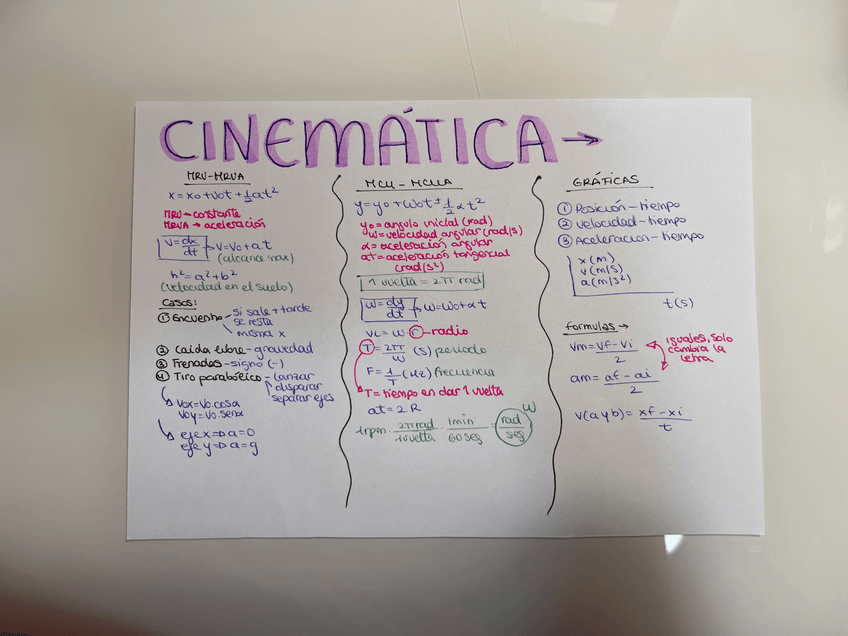 CINEMÁTICA →
MRU-MRUA
x = x0 + v0t + 1/2 at²
MRU → constante
MRUA → aceleración
v = dx/dt → v = v0 + at
(alcance max)
h² = a² + b²
(velocidad en el suelo)
Casos:
① Encuentro - si sale + tarde
se resta
misma x
② Caida libre - gravedad
③ Frenados - signo (-)
④ Tiro parabólico - lanzar
disparar
separar ejes
v0x = v0.cosα
v0y = v0.senα
eje x ⇒ a = 0
eje y ⇒ a = g
MCU - MCUA
y = y0 + w0t ± 1/2 α t²
y0 = angulo inicial (rad)
w = velocidad angular (rad/s)
α = aceleración angular
at = aceleración tangencial
(rad/s²)
1 vuelta = 2π rad
w = dy/dt → w = w0 + α t
vL = w · r - radio
T = 2π/w (s) período
F = 1/T (Hz) frecuencia
T = tiempo en dar 1 vuelta
at = 2 R
1rpm · 2π rad/1 vuelta · 1min/60 seg = rad/seg w
GRÁFICAS
① Posición - tiempo
② Velocidad - tiempo
③ Aceleración - tiempo
x (m)
v (m/s)
a (m/s²)
t (s)
formulas →
vm = vf - vi/2
iguales, solo
cambia la
letra
am = af - ai/2
v(a y b) = xf - xi/t